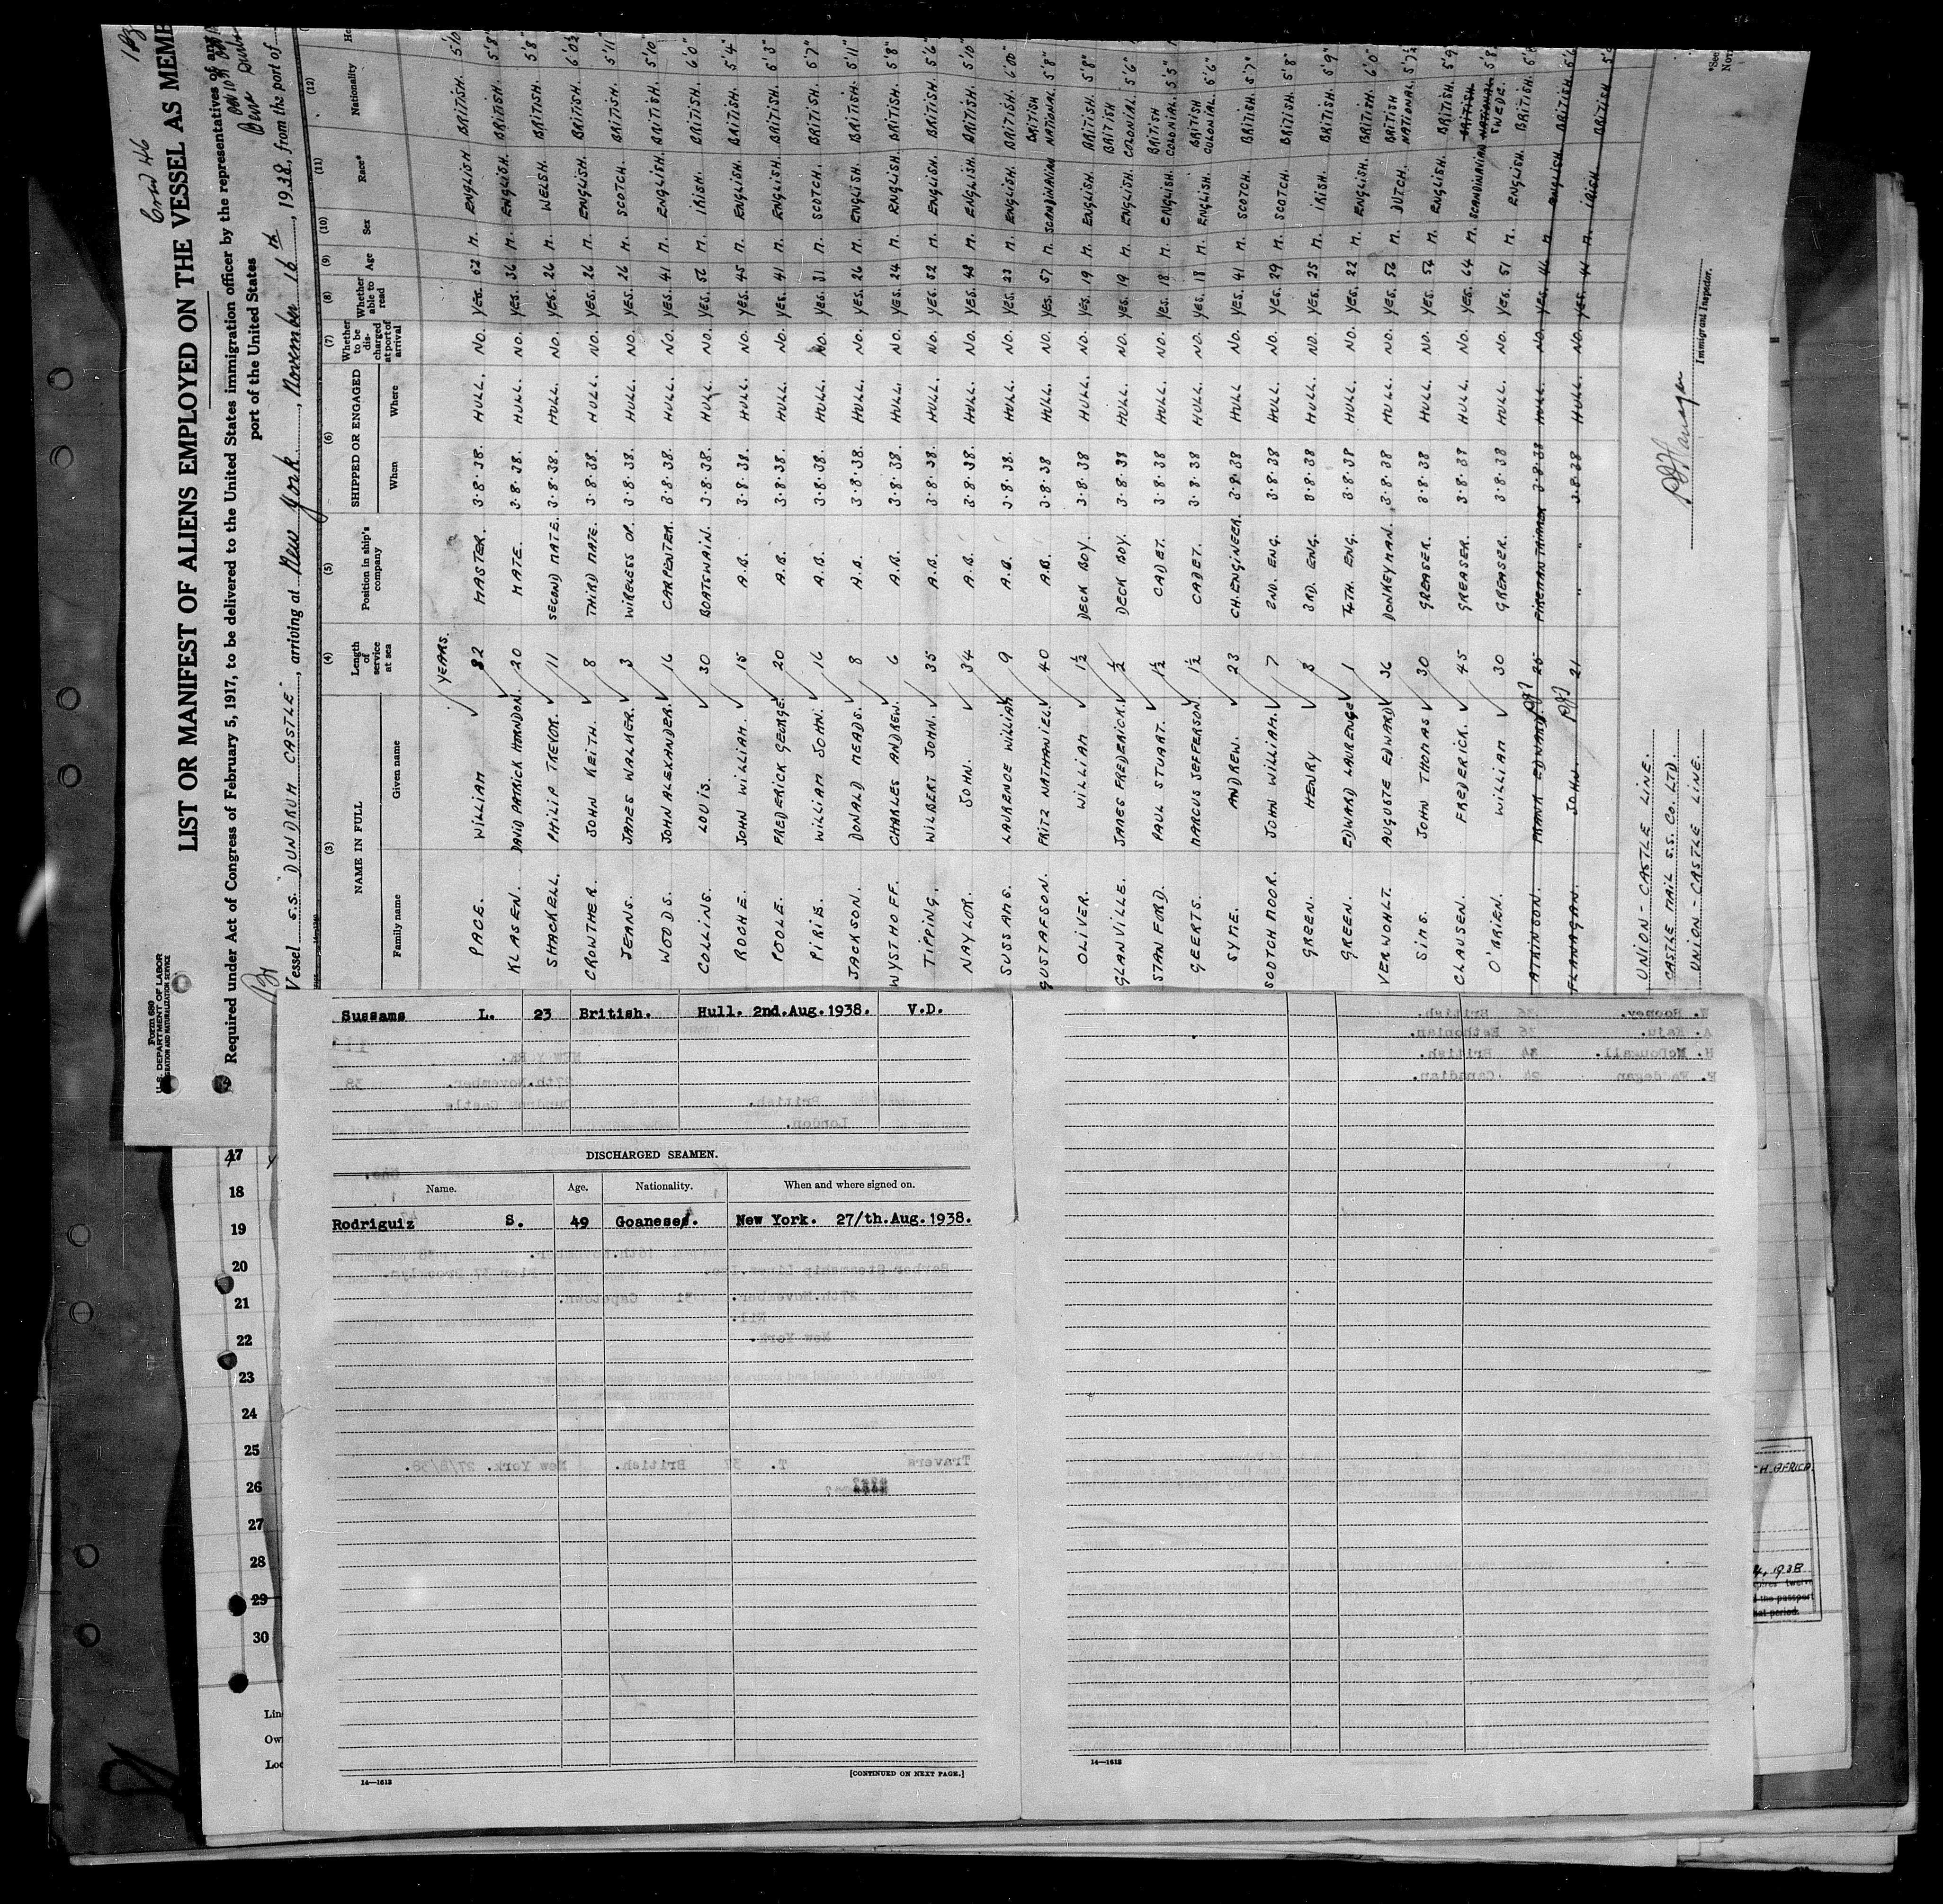 Form 680
U.S. DEPARTMENT OF LABOR
IMMIGRATION AND NATURALIZATION SERVICE
Crew 46
LIST OR MANIFEST OF ALIENS EMPLOYED ON THE VESSEL AS MEMB
Required under Act of Congress of February 5, 1917, to be delivered to the United States immigration officer by the representatives of any
port of the United States
Vessel S.S. "DUNDRUM CASTLE", arriving at New York, November 16th, 1938, from the port of
(3) (4) (5) (6) (7) (8) (9) (10) (11) (12)
NAME IN FULL Length of service at sea Position in ship's company SHIPPED OR ENGAGED Whether to be discharged at port of arrival Whether able to read Age Sex Race* Nationality He
Family name Given name When Where
YEARS.
PACE. WILLIAM 32 MASTER. 3.8.38. HULL. NO. YES. 52 M. ENGLISH BRITISH. 5'10
KLASEN. DAVID PATRICK HORNDON 20 MATE. 3.8.38. HULL. NO. YES. 36 M. ENGLISH. BRITISH. 5'8"
SHACKELL. PHILIP TREVOR. 11 SECOND MATE. 3.8.38. HULL. NO. YES. 26 M. WELSH. BRITISH. 5'8"
CROWTHER. JOHN KEITH. 8 THIRD MATE. 3.8.38. HULL. NO. YES. 26 M. ENGLISH. BRITISH. 6'0½
JEANS. JAMES WALKER. 3 WIRELESS OP. 3.8.38. HULL. NO. YES. 26 M. SCOTCH. BRITISH. 5'11"
WOODS. JOHN ALEXANDER. 16 CARPENTER. 3.8.38. HULL. NO. YES. 41 M. ENGLISH. BRITISH. 5'10"
COLLINS. LOUIS. 30 BOATSWAIN. 3.8.38. HULL. NO. YES. 56 M. IRISH. BRITISH. 6'0"
ROCHE. JOHN WILLIAM. 15 A.B. 3.8.38. HULL. NO. YES. 45 M. ENGLISH. BRITISH. 5'4"
POOLE. FREDERICK GEORGE. 20 A.B. 3.8.38. HULL. NO. YES. 41 M. ENGLISH. BRITISH. 6'3"
PIRIE. WILLIAM JOHN. 16 A.B. 3.8.38. HULL. NO. YES. 31 M. SCOTCH. BRITISH. 5'7"
JACKSON. DONALD MEADS. 8 A.B. 3.8.38. HULL. NO. YES. 26 M. ENGLISH. BRITISH. 5'11"
WYSTHOFF. CHARLES ANDREW. 6 A.B. 3.8.38. HULL. NO. YES. 24 M. ENGLISH. BRITISH. 5'8"
TIPPING. WILBERT JOHN. 35 A.B. 3.8.38. HULL. NO. YES. 52 M. ENGLISH. BRITISH. 5'6"
NAYLOR. JOHN. 34 A.B. 3.8.38. HULL. NO. YES. 48 M. ENGLISH. BRITISH. 5'10"
SUSSAMS. LAURENCE WILLIAM 9 A.B. 3.8.38. HULL. NO. YES. 23 M. ENGLISH. BRITISH. 6'00"
GUSTAFSON. FRITZ NATHANIEL. 40 A.B. 3.8.38 HULL. NO. YES. 57 M. SCANDINAVIAN BRITISH NATIONAL. 5'8"
OLIVER. WILLIAM 1½ DECK BOY. 3.8.38 HULL. NO. YES. 19 M. ENGLISH. BRITISH. 5'8"
GLANVILLE. JAMES FREDERICK. ½ DECK BOY. 3.8.38 HULL. NO. YES. 19 M. ENGLISH. BRITISH COLONIAL. 5'6"
STANFORD. PAUL STUART. 1½ CADET. 3.8.38 HULL. NO. YES. 18 M. ENGLISH. BRITISH COLONIAL. 5'5"
GEERTS. MARCUS JEFFERSON. 1½ CADET. 3.8.38 HULL. NO. YES. 18 M. ENGLISH. BRITISH COLONIAL. 5'6"
SYME. ANDREW. 23 CH. ENGINEER. 3.8.38 HULL NO. YES. 41 M. SCOTCH. BRITISH. 5'7"
SCOTCHMOOR. JOHN WILLIAM. 7 2ND. ENG. 3.8.38 HULL. NO. YES. 29 M. SCOTCH. BRITISH. 5'8"
GREEN. HENRY 3 3RD. ENG. 3.8.38 HULL. NO. YES. 25 M. IRISH. BRITISH. 5'9"
GREEN. EDWARD LAURENCE 1 4TH. ENG. 3.8.38 HULL. NO. YES. 22 M. ENGLISH. BRITISH. 6'0"
VERWOHLT. AUGUSTE EDWARD 36 DONKEYMAN. 3.8.38 HULL. NO. YES. 56 M. DUTCH. BRITISH NATIONAL. 5'7½
SIMS. JOHN THOMAS 30 GREASER. 3.8.38 HULL. NO. YES. 56 M. ENGLISH. BRITISH. 5'9"
CLAUSEN. FREDERICK. 45 GREASER. 3.8.38 HULL. NO. YES. 64 M. SCANDINAVIAN BRITISH NATIONAL SWEDE. 5'8
O'BRIEN. WILLIAM 30 GREASER. 3.8.38 HULL. NO. YES. 51 M. ENGLISH. BRITISH. 5'8
ATKINSON. FRANK EDWARD. 25 FIREMAN TRIMMER 3.8.38 HULL. NO. YES. 46 M ENGLISH BRITISH 5'6
FLANAGAN. JOHN. 21 " " 3.8.38 HULL. NO. YES. 41 M. IRISH BRITISH 5'9
UNION-CASTLE LINE.
CASTLE MAIL S.S. CO. LTD.
UNION-CASTLE LINE.
Immigrant Inspector.
*See
Nore
Sussams L. 23 British. Hull. 2nd.Aug.1938. V.D.
DISCHARGED SEAMEN.
Name. Age. Nationality. When and where signed on.
Rodriguiz S. 49 Goanese. New York. 27/th.Aug.1938.
14—1613
[CONTINUED ON NEXT PAGE.]
14—1613
17
18
19
20
21
22
23
24
25
26
27
28
29
30
Lin
Ow
Loc
TH AFRICA.
4, 1938
pires twelve
d the passport
hat period.